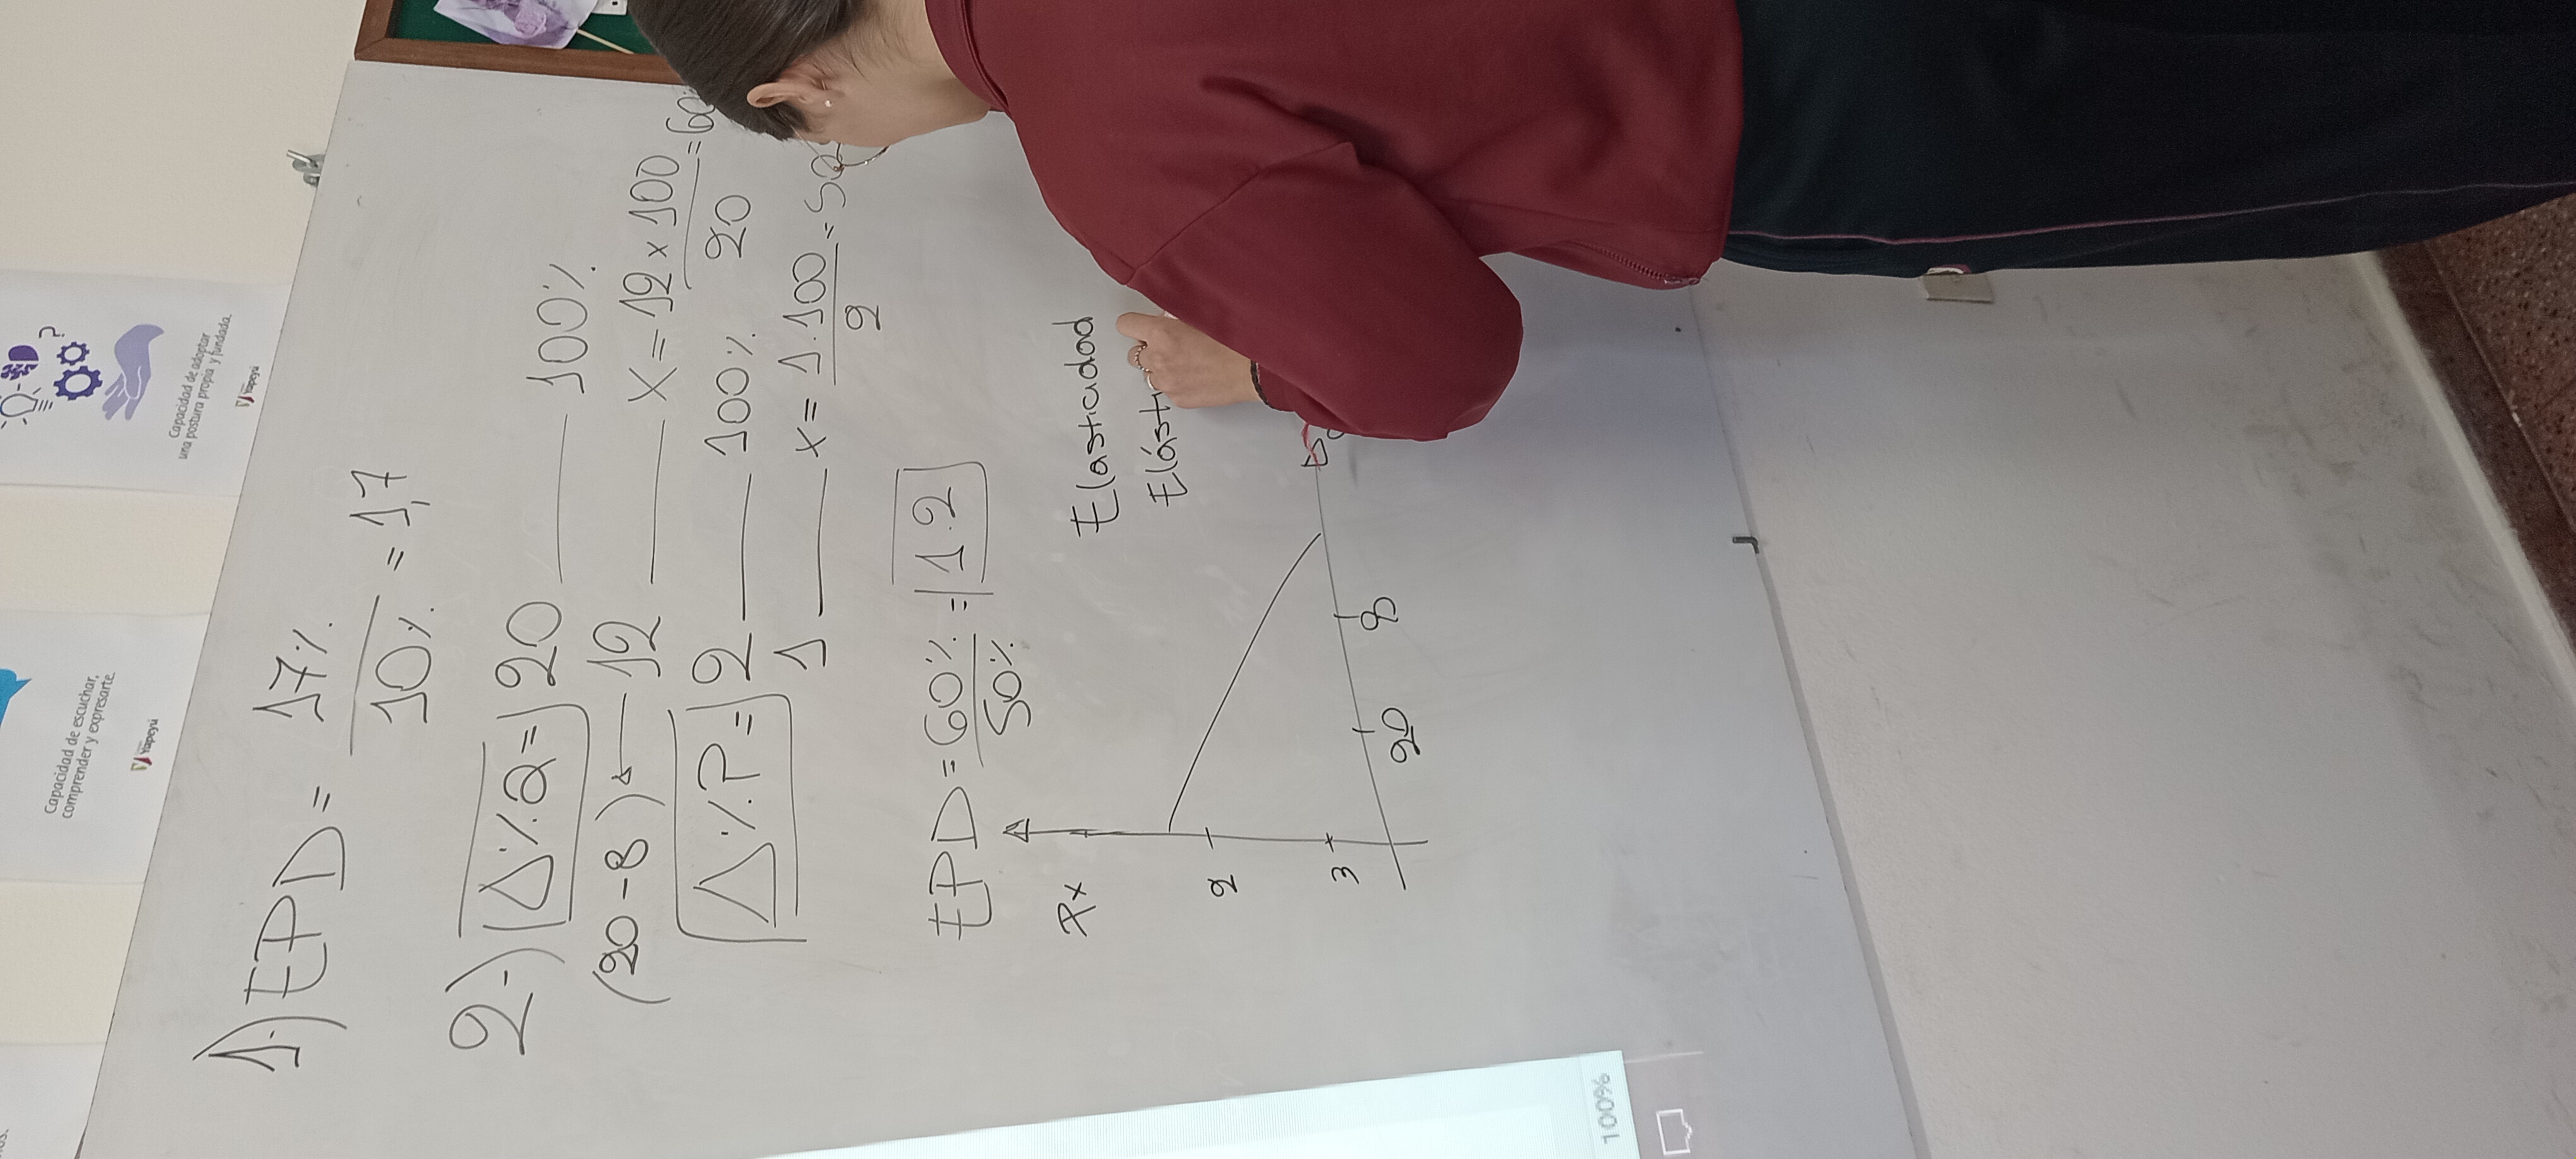 Capacidad de escuchar,
comprender y expresarte.
Yapeyú
?
Capacidad de adoptar
una postura propia y fundada.
Yapeyú
1.) EPD = 17% / 10% = 1,7
2-) Δ%Q= 20 — 100%
(20-8) ← 12 — X = 12 x 100 / 20 =
Δ%P= 2 — 100%
1 — x = 1.100 / 2 =
EPD = 60% / 50% = 1.2
Px
Elasticidad
2
3
20
8
100%